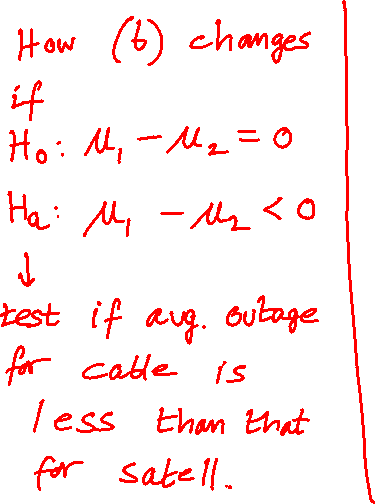 How (b) changes
if
H₀: μ₁ - μ₂ = 0
Hₐ: μ₁ - μ₂ < 0
↓
test if avg. outage
for cable is
less than that
for satell.